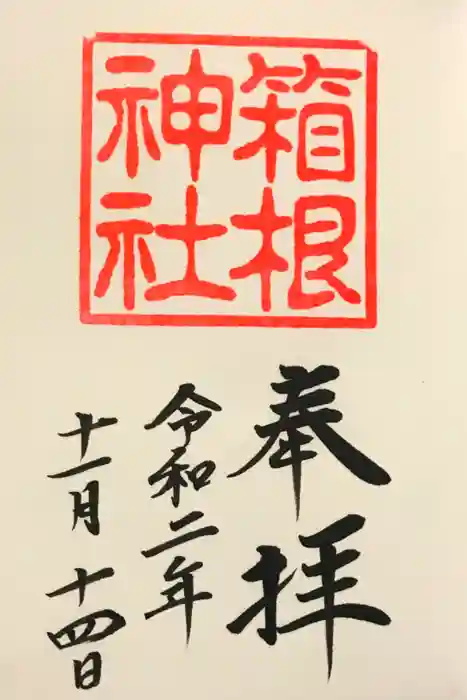 箱根
神社
奉拝
令和二年
十一月十四日